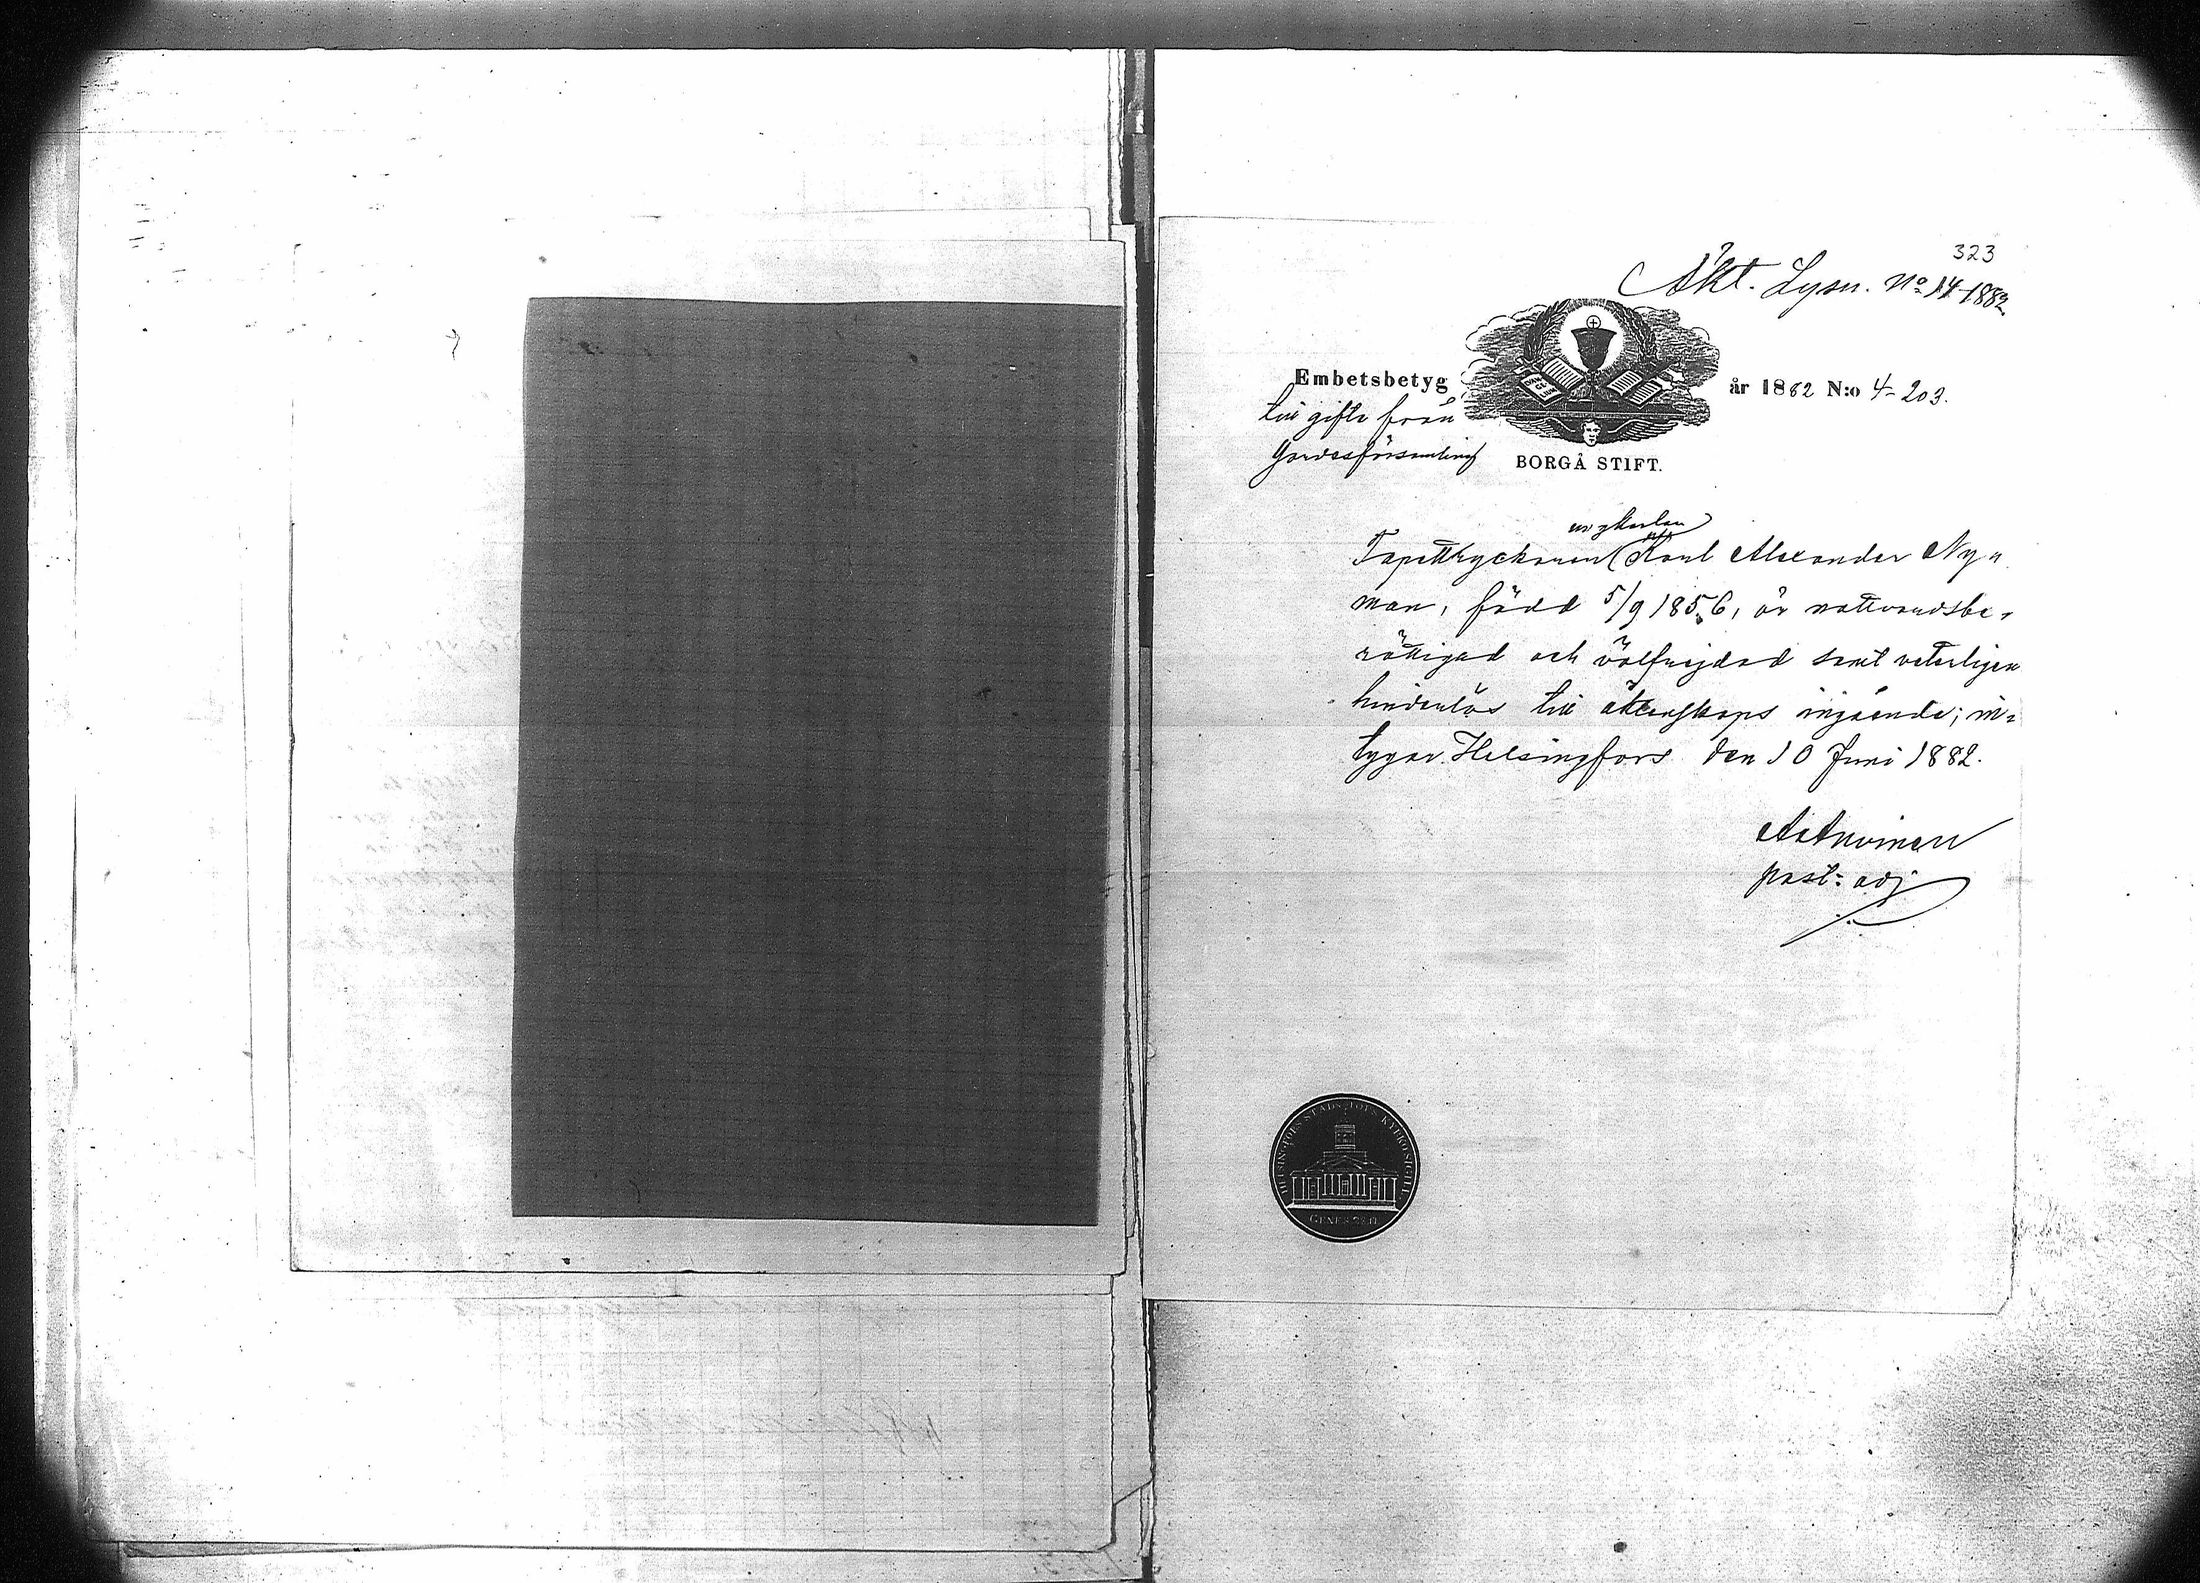 323
Äkt. Lysn. No 14-1882
Embetsbetyg
år 1882 N:o 4-203.
till gifte från
BORGÅ STIFT.
ungkarlen
Tapettryckaren Karl Alexander Ny-
man, född 5/9 1856, är nattvardsbe-
rättigad och välfrejdad samt veterligen
hinderlös till äktenskaps ingående; in-
tygar. Helsingfors den 10 Juni 1882.
past: adj
HELSINGFORS STADS KYRKOSIGILL